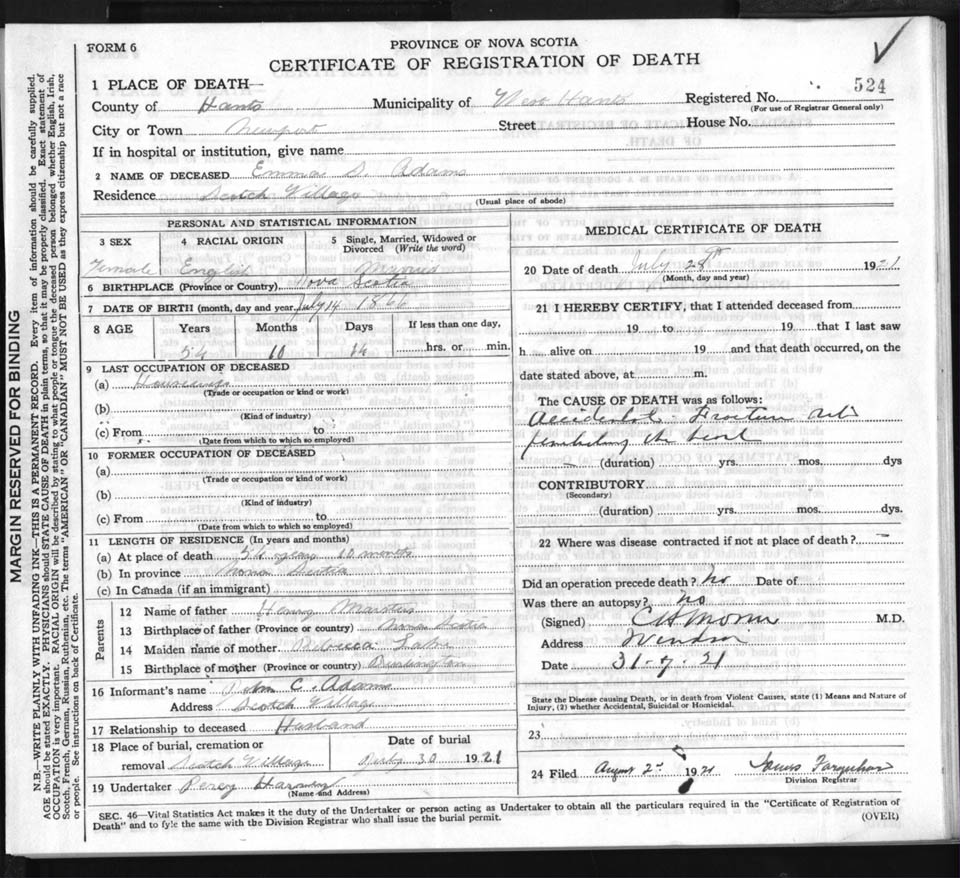 FORM 6
PROVINCE OF NOVA SCOTIA
CERTIFICATE OF REGISTRATION OF DEATH
1 PLACE OF DEATH—
524
County of Hants Municipality of West Hants Registered No.
(For use of Registrar General only)
City or Town Newport Street House No.
If in hospital or institution, give name
2 NAME OF DECEASED Emma S. Adams
Residence Scotch Village
(Usual place of abode)
PERSONAL AND STATISTICAL INFORMATION
3 SEX 4 RACIAL ORIGIN 5 Single, Married, Widowed or Divorced (Write the word)
Female English Married
6 BIRTHPLACE (Province or Country) Nova Scotia
7 DATE OF BIRTH (month, day and year) July 14 1866
8 AGE Years Months Days If less than one day,
54 10 14 hrs. or min.
9 LAST OCCUPATION OF DECEASED
(a) Housewife
(Trade or occupation or kind or work)
(b)
(Kind of industry)
(c) From to
(Date from which to which so employed)
10 FORMER OCCUPATION OF DECEASED
(a)
(Trade or occupation or kind or work)
(b)
(Kind of industry)
(c) From to
(Date from which to which so employed)
11 LENGTH OF RESIDENCE (In years and months)
(a) At place of death 54 years 10 months
(b) In province Nova Scotia
(c) In Canada (if an immigrant)
Parents
12 Name of father Henry Marsters
13 Birthplace of father (Province or country) Nova Scotia
14 Maiden name of mother. Rebecca
15 Birthplace of mother (Province or country) Burlington
16 Informant's name John C. Adams
Address Scotch Village
17 Relationship to deceased Husband
18 Place of burial, cremation or Date of burial
removal Scotch Village July 30 1921
19 Undertaker Percy
(Name and Address)
MEDICAL CERTIFICATE OF DEATH
20 Date of death July 28th 1921
(Month, day and year)
21 I HEREBY CERTIFY, that I attended deceased from
19 to 19 that I last saw
h alive on 19 and that death occurred, on the
date stated above, at m.
The CAUSE OF DEATH was as follows:
Accidental. Fracture
the
(duration) yrs. mos. dys
CONTRIBUTORY
(Secondary)
(duration) yrs. mos. dys.
22 Where was disease contracted if not at place of death?
Did an operation precede death? No Date of
Was there an autopsy? no
(Signed) M.D.
Address Windsor
Date 31-7-21
State the Disease causing Death, or in death from Violent Causes, state (1) Means and Nature of
Injury, (2) whether Accidental, Suicidal or Homicidal.
23
24 Filed August 2nd 1921 Farquhar
Division Registrar
SEC. 46—Vital Statistics Act makes it the duty of the Undertaker or person acting as Undertaker to obtain all the particulars required in the "Certificate of Registration of
Death" and to fyle the same with the Division Registrar who shall issue the burial permit.
(OVER)
MARGIN RESERVED FOR BINDING
N.B.—WRITE PLAINLY WITH UNFADING INK—THIS IS A PERMANENT RECORD. Every item of information should be carefully supplied.
AGE should be stated EXACTLY. PHYSICIANS should STATE CAUSE OF DEATH in plain terms, so that it may be properly classified. Exact statement of
OCCUPATION is very important. RACIAL ORIGIN will be described by stating to what people or tongue the deceased person belonged whether English, Irish,
Scotch, French, German, Russian, Ruthenian, etc. The terms "AMERICAN" OR "CANADIAN" MUST NOT BE USED as they express citizenship but not a race
or people. See instructions on back of Certificate.